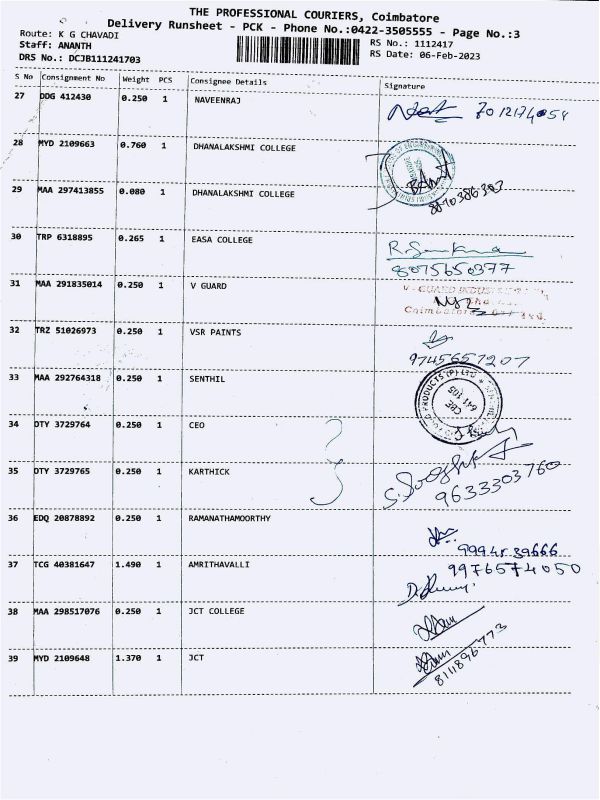 THE PROFESSIONAL COURIERS, Coimbatore
Delivery Runsheet - PCK - Phone No.:0422-3505555 - Page No.:3
Route: K G CHAVADI
Staff: ANANTH
DRS No.: DCJB111241703
RS No.: 1112417
RS Date: 06-Feb-2023
S No Consignment No Weight PCS Consignee Details Signature
27 DDG 412430 0.250 1 NAVEENRAJ
28 MYD 2109663 0.760 1 DHANALAKSHMI COLLEGE
29 MAA 297413855 0.080 1 DHANALAKSHMI COLLEGE
8870386303
30 TRP 6318895 0.265 1 EASA COLLEGE
8075650377
31 MAA 291835014 0.250 1 V GUARD
Coimbatore
32 TRZ 51026973 0.250 1 VSR PAINTS
9745657207
33 MAA 292764318 0.250 1 SENTHIL
PRODUCTS (P) LTD
CBE
641 105
34 DTY 3729764 0.250 1 CEO
35 DTY 3729765 0.250 1 KARTHICK
9633303760
36 EDQ 20878892 0.250 1 RAMANATHAMOORTHY
9994539666
37 TCG 40381647 1.490 1 AMRITHAVALLI
9976574050
38 MAA 298517076 0.250 1 JCT COLLEGE
39 MYD 2109648 1.370 1 JCT
8111896773